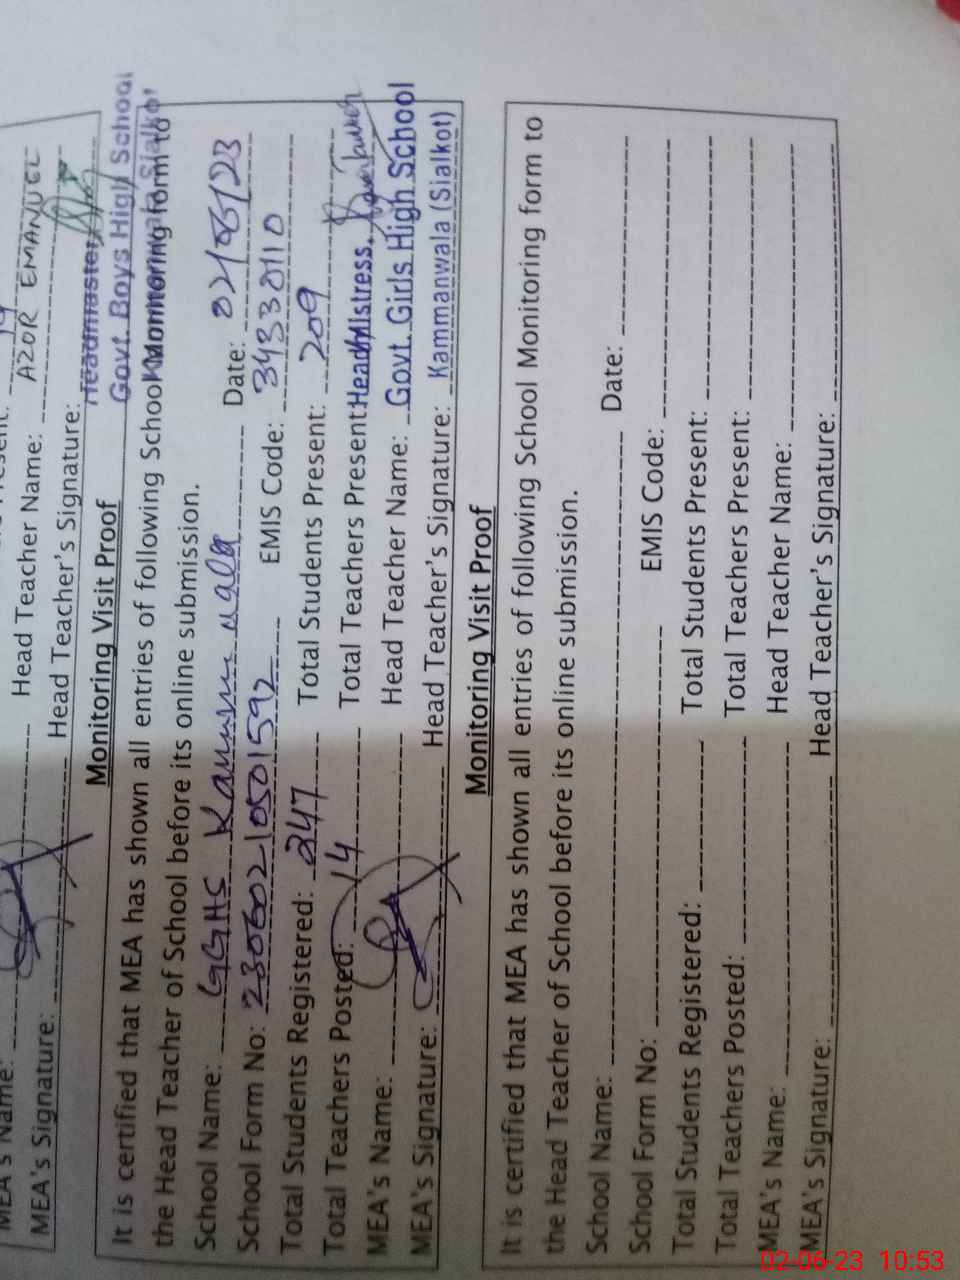 MEA's Name: Head Teacher Name: AZOR EMANUEL
MEA's Signature: Head Teacher's Signature:
Headmaster
Govt. Boys High School
Monitoring Visit Proof
It is certified that MEA has shown all entries of following School Monitoring form to
the Head Teacher of School before its online submission.
School Name: GGHS Date: 02/06/23
School Form No: 23060210501592 EMIS Code: 34330110
Total Students Registered: 247 Total Students Present: 209
Total Teachers Posted: 14 Total Teachers Present:
MEA's Name: Head Teacher Name:
MEA's Signature: Head Teacher's Signature:
Head Mistress,
Govt. Girls High School
Kammanwala (Sialkot)
Monitoring Visit Proof
It is certified that MEA has shown all entries of following School Monitoring form to
the Head Teacher of School before its online submission.
School Name: Date:
School Form No: EMIS Code:
Total Students Registered: Total Students Present:
Total Teachers Posted: Total Teachers Present:
MEA's Name: Head Teacher Name:
MEA's Signature: Head Teacher's Signature:
02-06-23 10:53